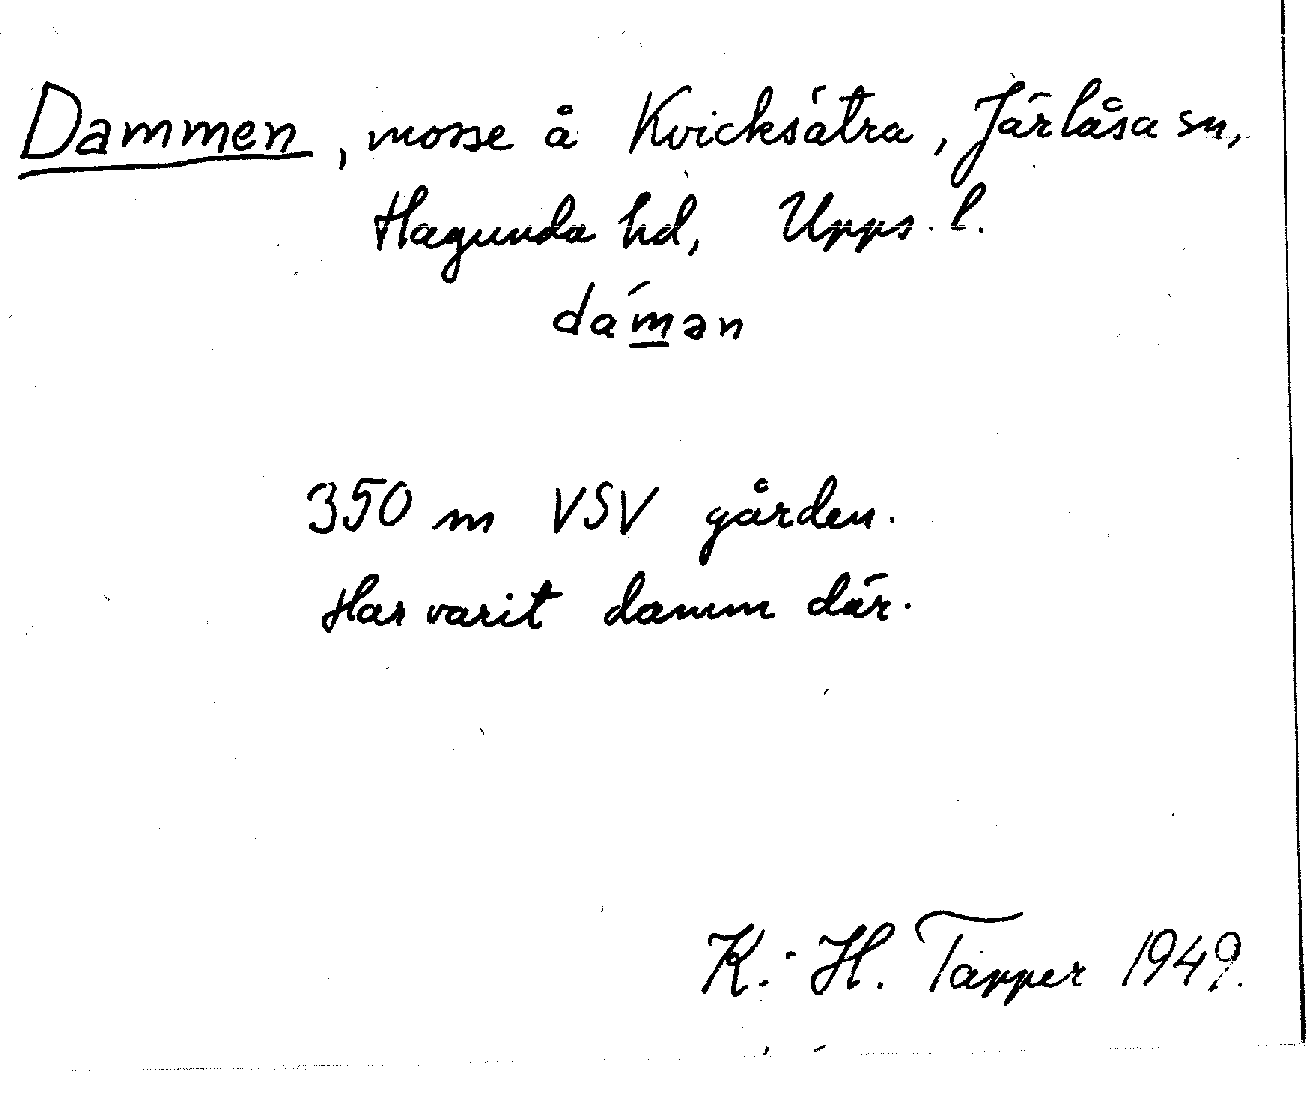 Dammen, mosse å Kvicksätra, Järlåsa sn,
Hagunda hd, Upps. l.
dam´ən
350 m VSV gården.
Har varit damm där.
K.-H. Tapper 1949.